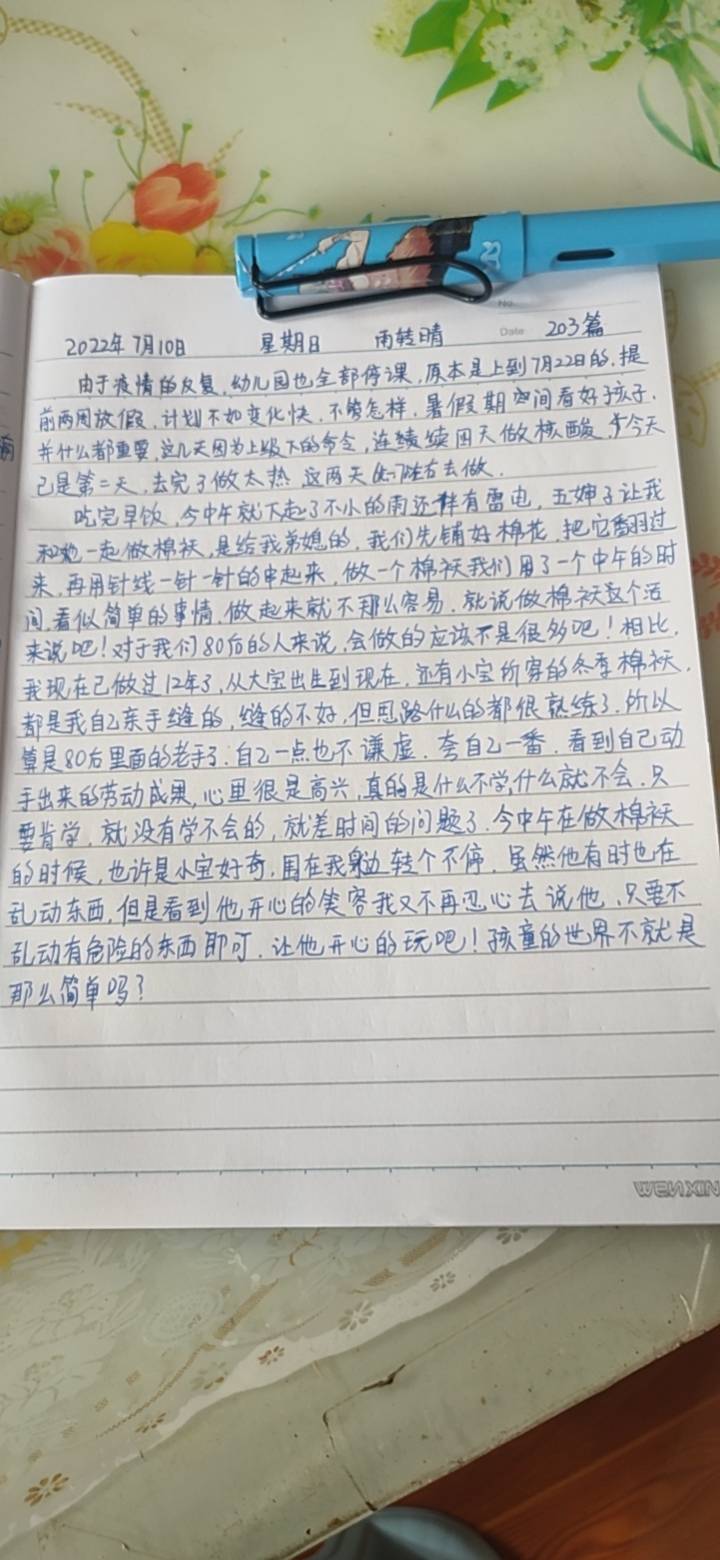 No.
2022年7月10日 星期日 雨转晴 Date 203篇
由于疫情的反复,幼儿园也全部停课,原本是上到7月22日的,提
前两周放假,计划不如变化快,不管怎样,暑假期间看好孩子,
并什么都重要,这几天因为上级下的命令,连续续四天做核酸,今天
已是第二天,去完了做太热 这两天
吃完早饭,今中午就下起了不小的雨还伴有雷电,五婶子让我
和她一起做棉袄,是给我弟媳的,我们先铺好棉花,把它翻过
来,再用针线一针一针的串起来,做一个棉袄我们用了一个中午的时
间,看似简单的事情,做起来就不那么容易,就说做棉袄这个活
来说吧!对于我们80后的人来说,会做的应该不是很多吧!相比,
我现在已做过12年了,从大宝出生到现在,还有小宝所穿的冬季棉袄,
都是我自己亲手缝的,缝的不好,但思路什么的都很熟练了,所以
算是80后里面的老手了,自己一点也不谦虚,夸自己一番,看到自己动
手出来的劳动成果,心里很是高兴,真的是什么不学,什么就不会,只
要肯学,就没有学不会的,就差时间的问题了,今中午在做棉袄
的时候,也许是小宝好奇,围在我身边转个不停,虽然他有时也在
乱动东西,但是看到他开心的笑容我又不再忍心去说他,只要不
乱动有危险的东西即可,让他开心的玩吧!孩童的世界不就是
那么简单吗?
WENXIN